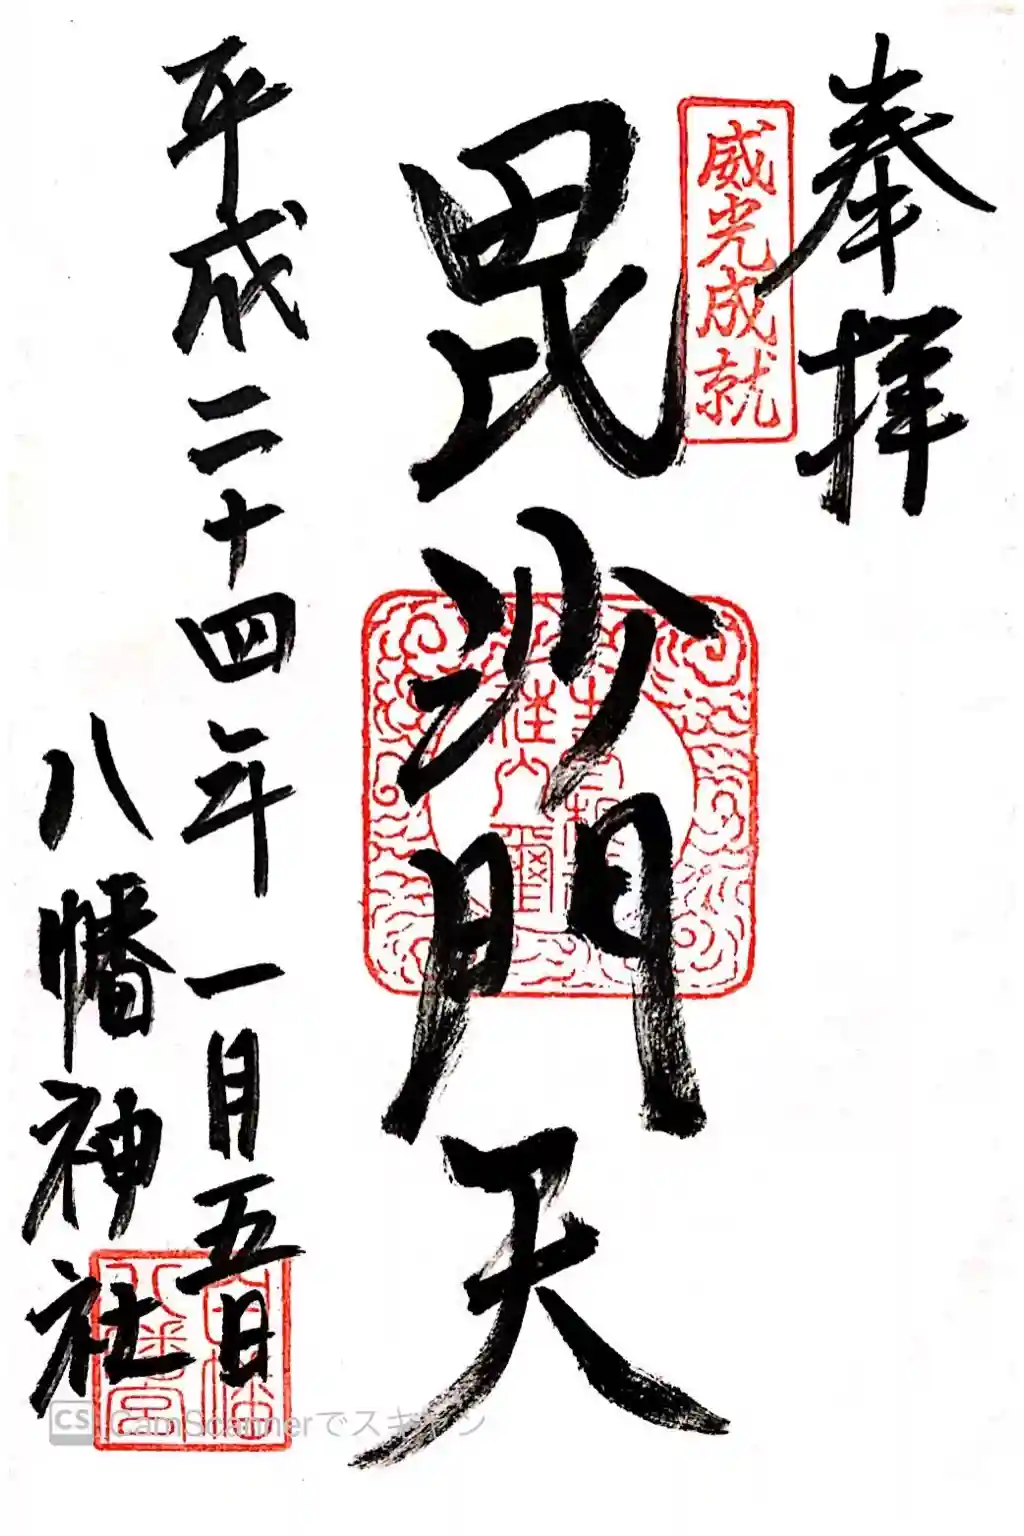 奉拝
威光成就
毘沙門天
平成二十四年一月五日
八幡神社
CS CamScannerでスキャン